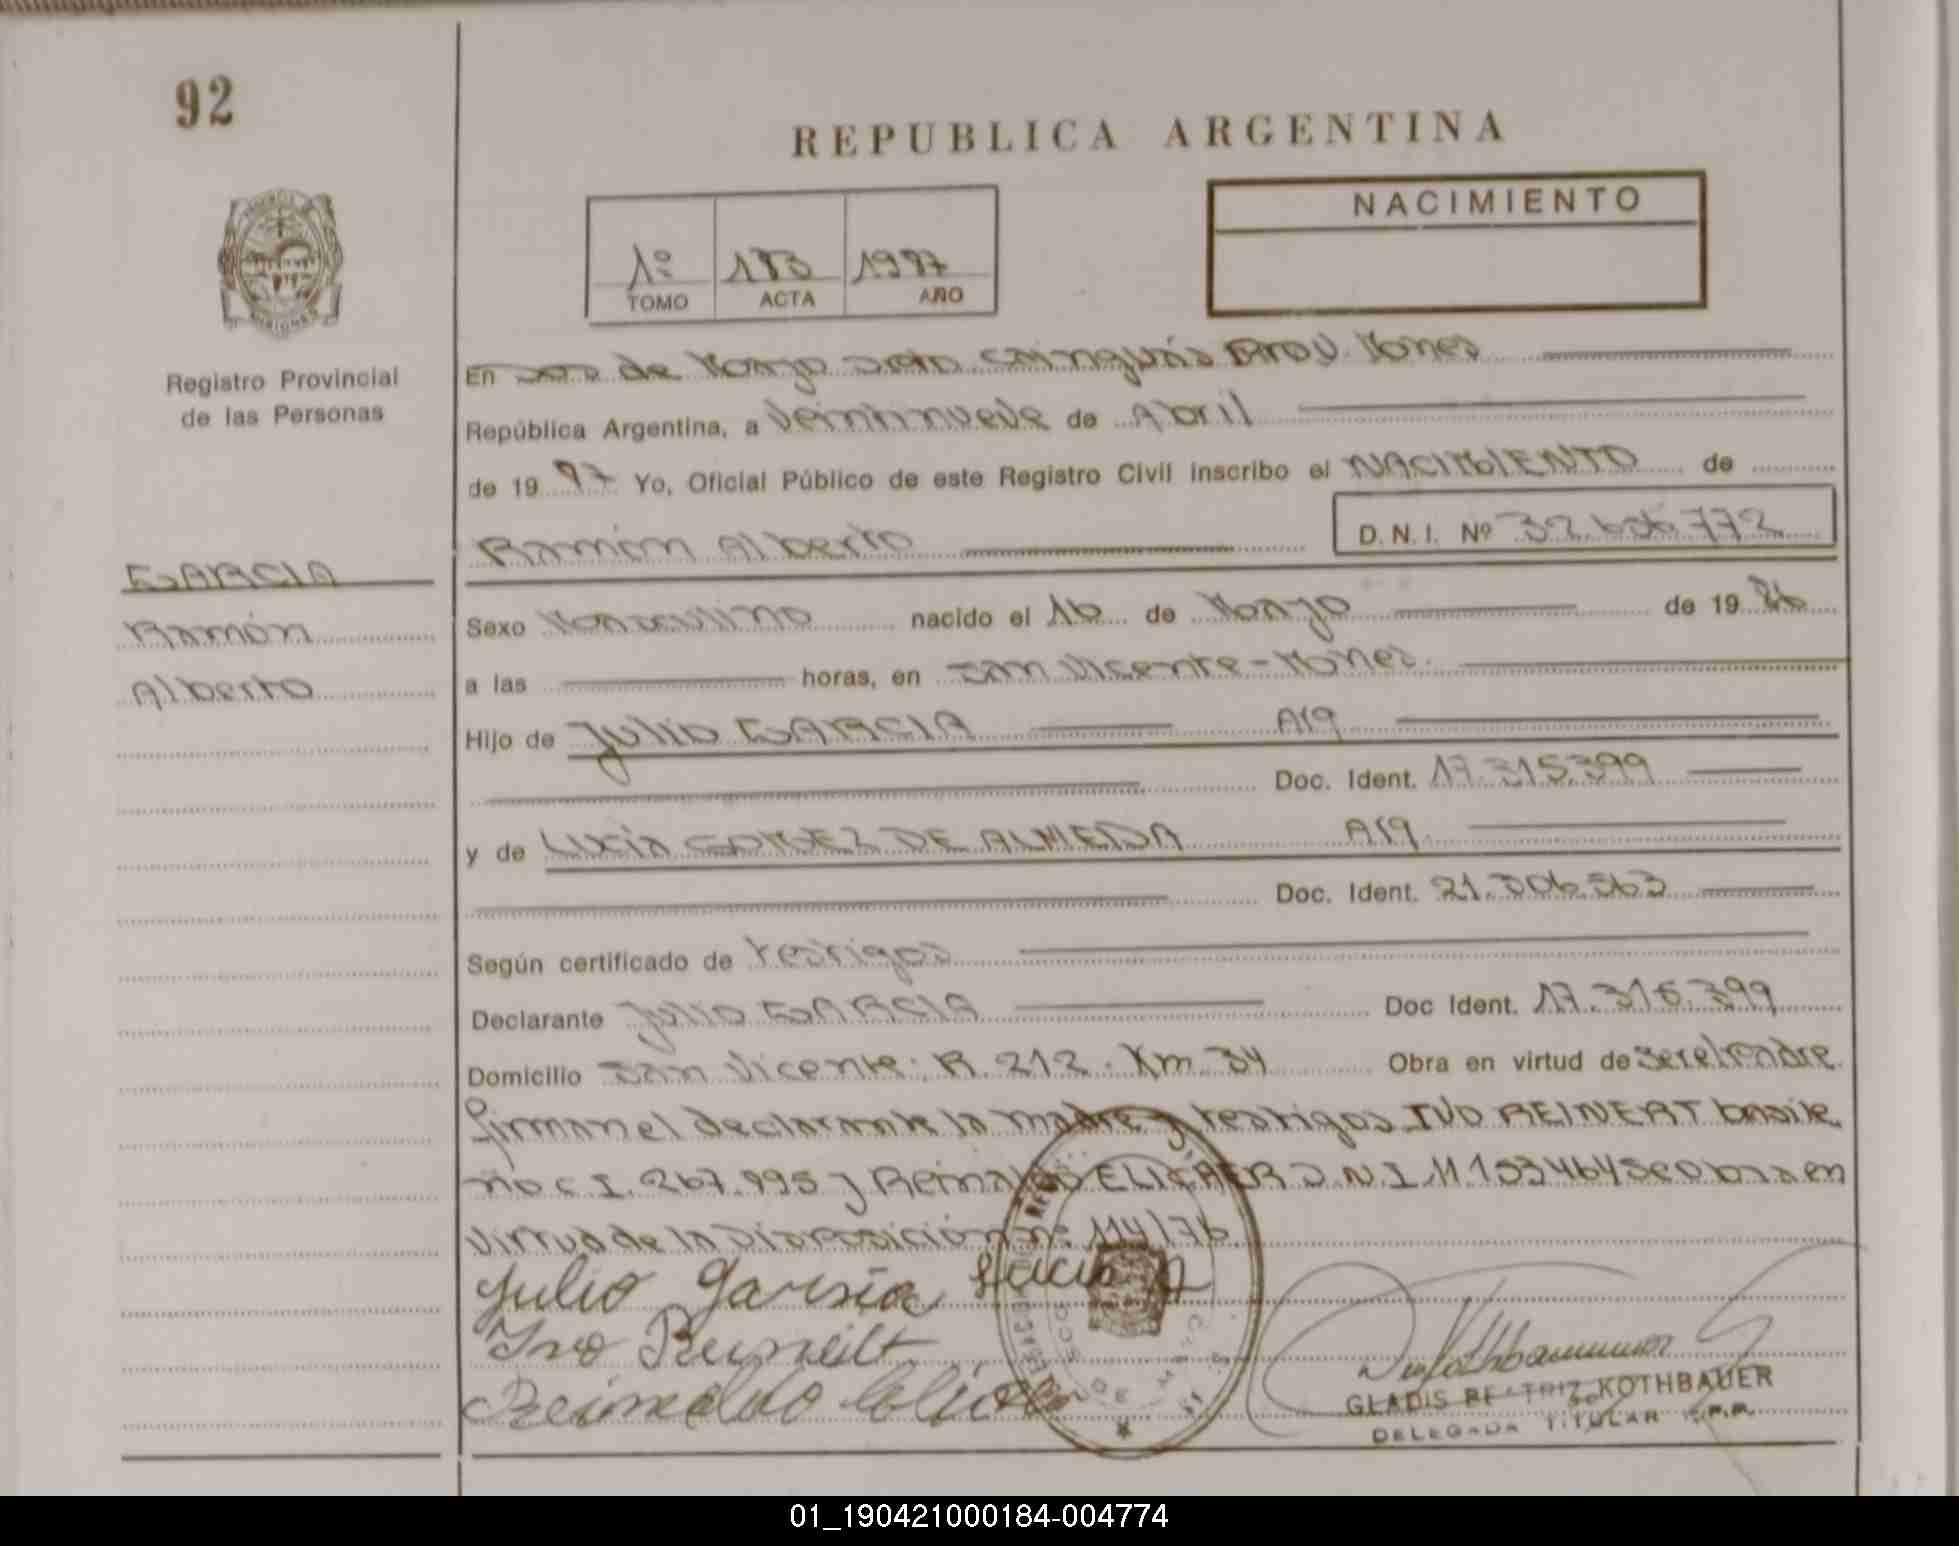 92
REPUBLICA ARGENTINA
NACIMIENTO
1º 183 1997
TOMO ACTA AÑO
Registro Provincial
de las Personas
En Dos de Mayo Dpto Cainguás Prov. Mnes
República Argentina, a veintinueve de Abril
de 1997 Yo, Oficial Público de este Registro Civil inscribo el NACIMIENTO de
Ramón Alberto D. N. I. Nº 32.636.772
GARCIA
Ramón
Alberto
Sexo Masculino nacido el 16 de Mayo de 1986
a las horas, en San Vicente - Mnes.
Hijo de Julio GARCIA Arg
Doc. Ident. 17.315.399
y de Lucía GOMEZ DE ALMEIDA Arg.
Doc. Ident. 21.306.563
Según certificado de testigos
Declarante Julio GARCIA Doc Ident. 17.315.399
Domicilio San Vicente: R. 212. Km. 34 Obra en virtud de ser el padre
firman el declarante la madre y testigos IVO REINERT brasile
ño C I. 267.995 y Reinaldo D.N.I. M. se obra en
virtud de la Disposición nº 114/76.
Julio Garsía Lucia
Ivo Reineilt
Reinaldo
GLADIS BEATRIZ KOTHBAUER
DELEGADA TITULAR
01_190421000184-004774